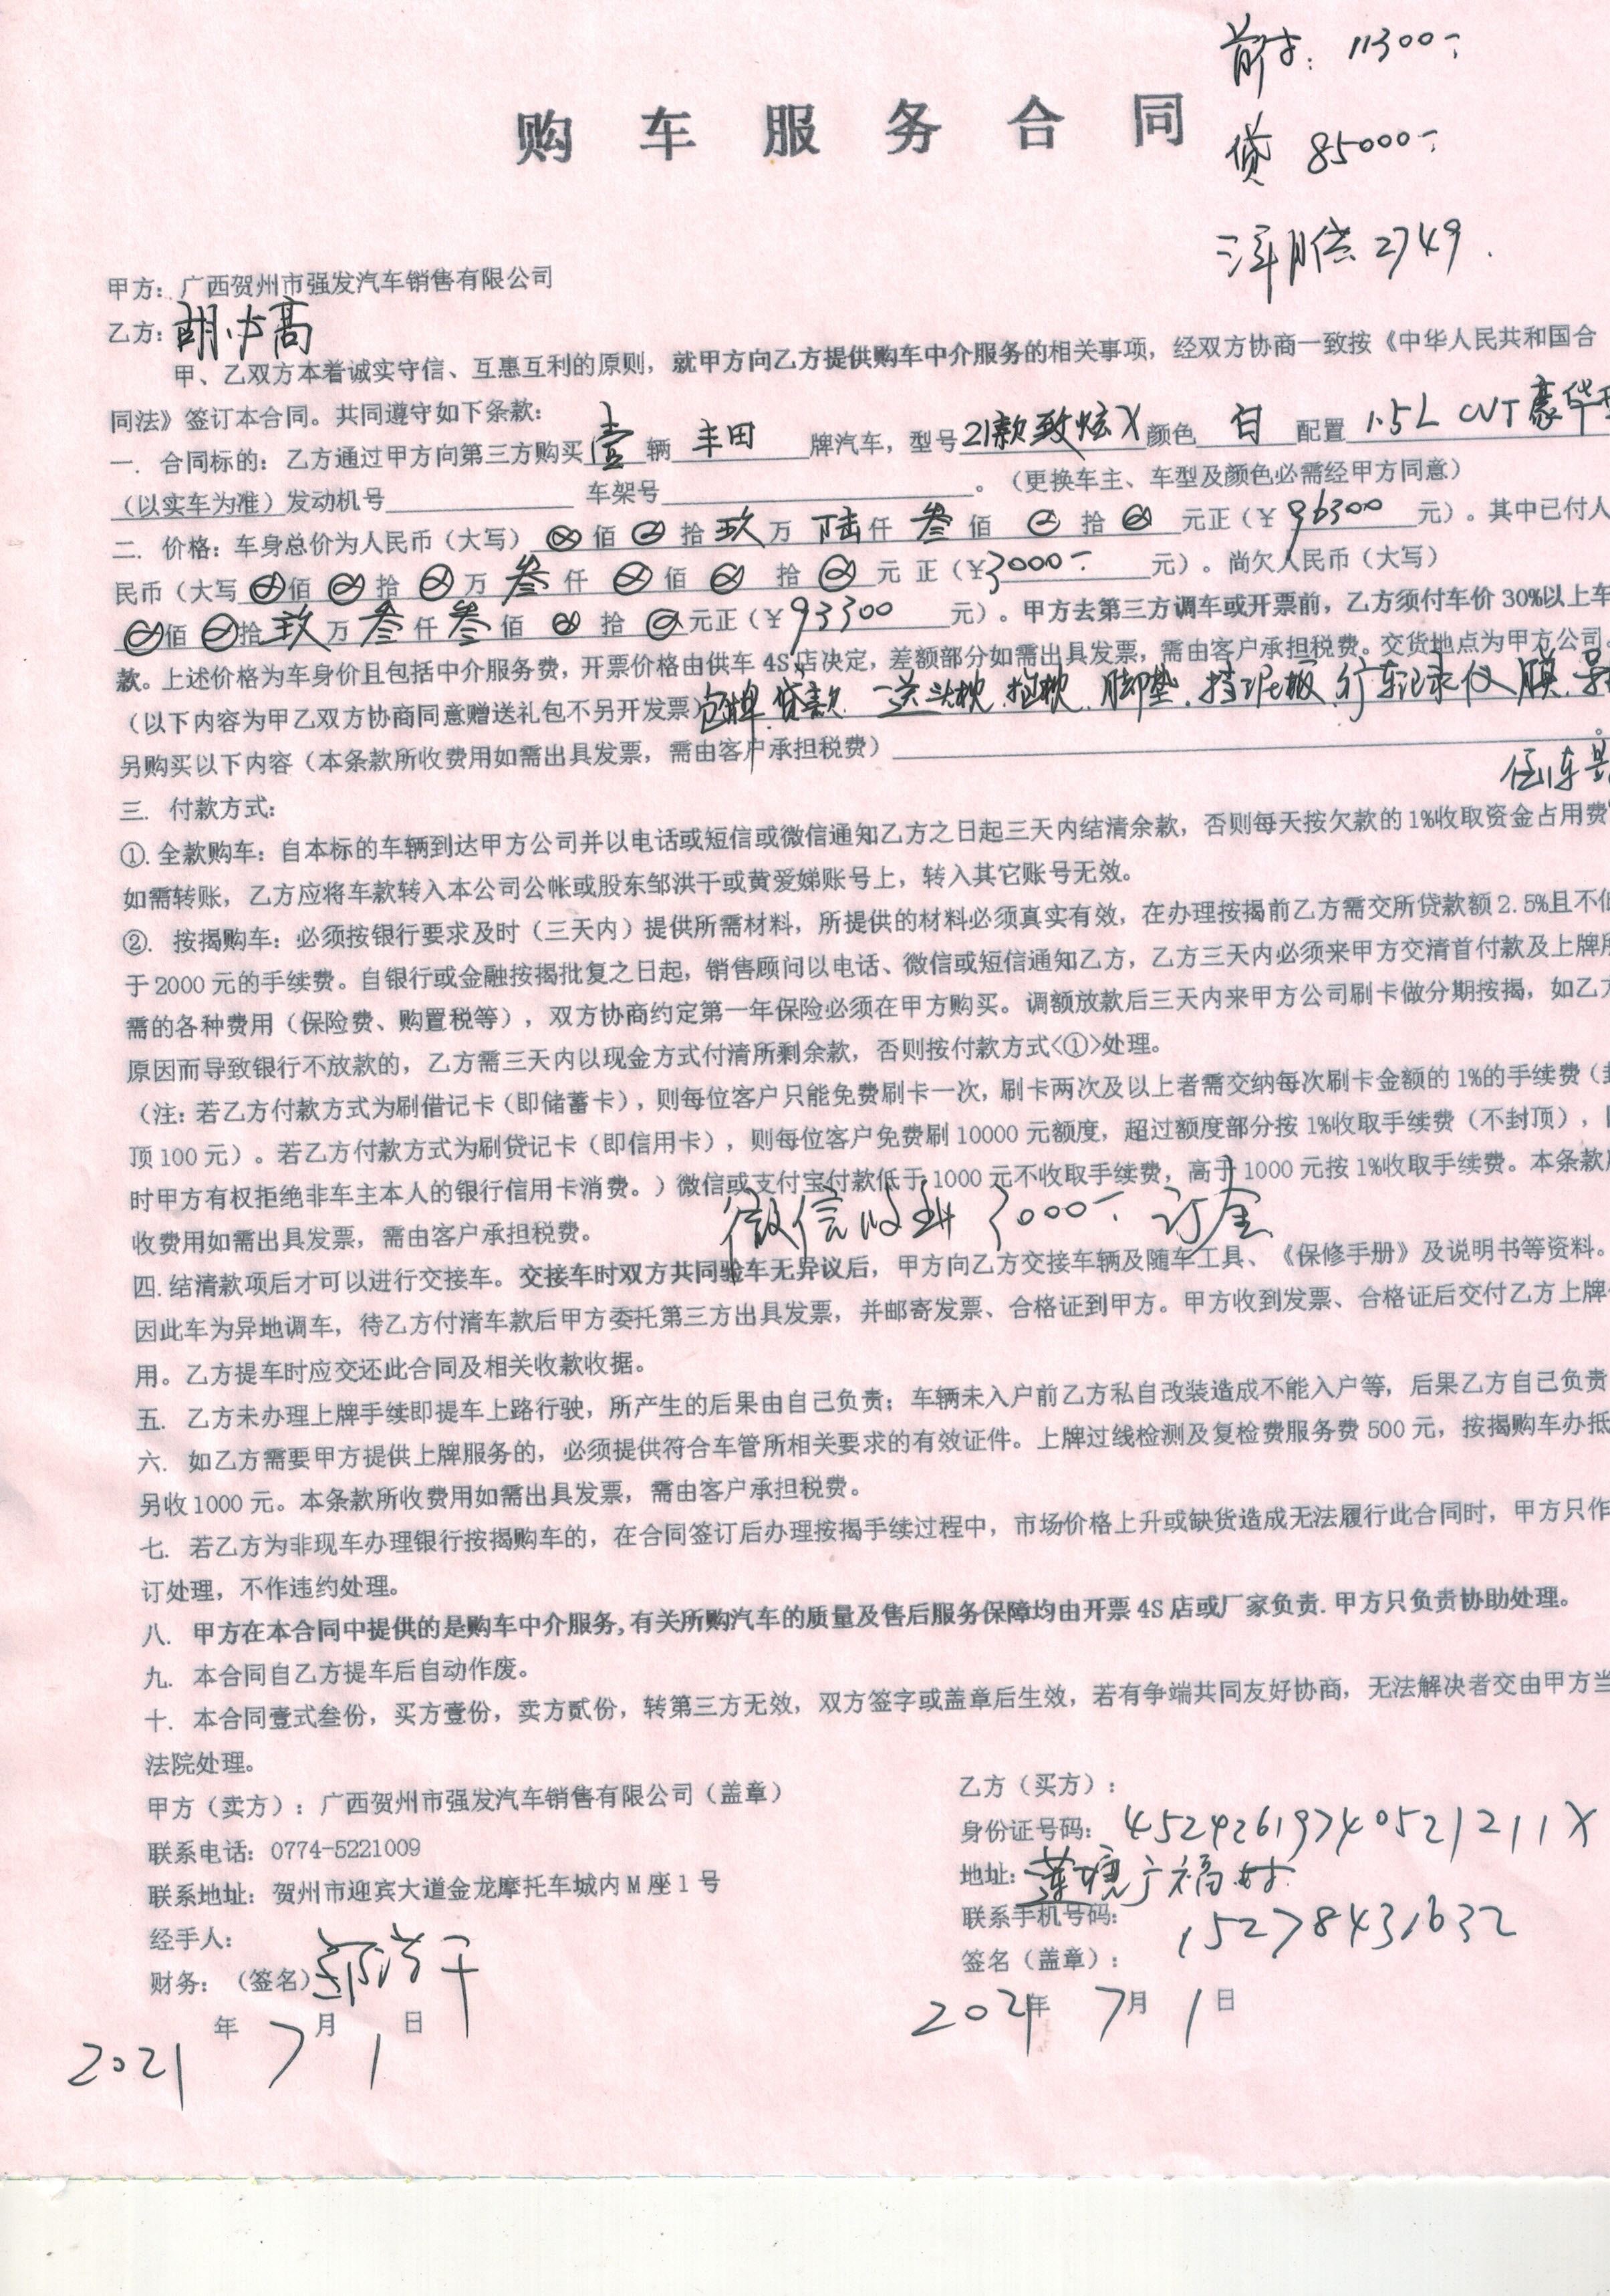 前付：11300-
购车服务合同
贷 85000-
2749.
甲方：广西贺州市强发汽车销售有限公司
乙方：胡高
甲、乙双方本着诚实守信、互惠互利的原则，就甲方向乙方提供购车中介服务的相关事项，经双方协商一致按《中华人民共和国合
同法》签订本合同。共同遵守如下条款：
一. 合同标的：乙方通过甲方向第三方购买壹辆丰田牌汽车，型号21款致炫X颜色白配置1.5L CVT豪华型
（以实车为准）发动机号 车架号 。（更换车主、车型及颜色必需经甲方同意）
二. 价格：车身总价为人民币（大写）⊗佰⊗拾玖万陆仟叁佰⊗拾⊗元正（￥96300元）。其中已付人
民币（大写⊗佰⊗拾⊗万叁仟⊗佰⊗拾⊗元 正（￥3000-元）。尚欠人民币（大写）
⊗佰⊗拾玖万叁仟叁佰⊗拾⊗元正（￥93300元）。甲方去第三方调车或开票前，乙方须付车价30%以上车
款。上述价格为车身价且包括中介服务费，开票价格由供车4S店决定，差额部分如需出具发票，需由客户承担税费。交货地点为甲方公司。
（以下内容为甲乙双方协商同意赠送礼包不另开发票）包牌.贷款.送头枕.抱枕.脚垫.挡泥板.行车记录仪.膜.导
另购买以下内容（本条款所收费用如需出具发票，需由客户承担税费） 。
倒车影
三. 付款方式：
①. 全款购车：自本标的车辆到达甲方公司并以电话或短信或微信通知乙方之日起三天内结清余款，否则每天按欠款的1%收取资金占用费
如需转账，乙方应将车款转入本公司公帐或股东邹洪干或黄爱娣账号上，转入其它账号无效。
②. 按揭购车：必须按银行要求及时（三天内）提供所需材料，所提供的材料必须真实有效，在办理按揭前乙方需交所贷款额2.5%且不低
于2000元的手续费。自银行或金融按揭批复之日起，销售顾问以电话、微信或短信通知乙方，乙方三天内必须来甲方交清首付款及上牌所
需的各种费用（保险费、购置税等），双方协商约定第一年保险必须在甲方购买。调额放款后三天内来甲方公司刷卡做分期按揭，如乙方
原因而导致银行不放款的，乙方需三天内以现金方式付清所剩余款，否则按付款方式<①>处理。
（注：若乙方付款方式为刷借记卡（即储蓄卡），则每位客户只能免费刷卡一次，刷卡两次及以上者需交纳每次刷卡金额的1%的手续费（封
顶100元）。若乙方付款方式为刷贷记卡（即信用卡），则每位客户免费刷10000元额度，超过额度部分按1%收取手续费（不封顶），同
时甲方有权拒绝非车主本人的银行信用卡消费。）微信或支付宝付款低于1000元不收取手续费，高于1000元按1%收取手续费。本条款所
收费用如需出具发票，需由客户承担税费。
微信收到 3000- 订金
四. 结清款项后才可以进行交接车。交接车时双方共同验车无异议后，甲方向乙方交接车辆及随车工具、《保修手册》及说明书等资料。
因此车为异地调车，待乙方付清车款后甲方委托第三方出具发票，并邮寄发票、合格证到甲方。甲方收到发票、合格证后交付乙方上牌
用。乙方提车时应交还此合同及相关收款收据。
五. 乙方未办理上牌手续即提车上路行驶，所产生的后果由自己负责；车辆未入户前乙方私自改装造成不能入户等，后果乙方自己负责
六. 如乙方需要甲方提供上牌服务的，必须提供符合车管所相关要求的有效证件。上牌过线检测及复检费服务费500元，按揭购车办抵
另收1000元。本条款所收费用如需出具发票，需由客户承担税费。
七. 若乙方为非现车办理银行按揭购车的，在合同签订后办理按揭手续过程中，市场价格上升或缺货造成无法履行此合同时，甲方只作
订处理，不作违约处理。
八. 甲方在本合同中提供的是购车中介服务,有关所购汽车的质量及售后服务保障均由开票4S店或厂家负责.甲方只负责协助处理。
九. 本合同自乙方提车后自动作废。
十. 本合同壹式叁份，买方壹份，卖方贰份，转第三方无效，双方签字或盖章后生效，若有争端共同友好协商，无法解决者交由甲方当
法院处理。
甲方（卖方）：广西贺州市强发汽车销售有限公司（盖章）
联系电话：0774-5221009
联系地址：贺州市迎宾大道金龙摩托车城内M座1号
经手人：
财务：（签名）邹洪干
2021年7月1日
乙方（买方）：
身份证号码：45242619740521211X
地址：莲塘广福村
联系手机号码：15278431632
签名（盖章）：
2021年7月1日